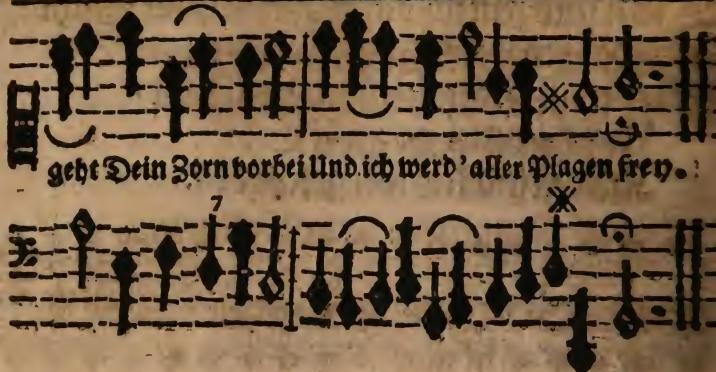 geht Dein Zorn vorbei Und ich werd' aller Plagen frey.
7